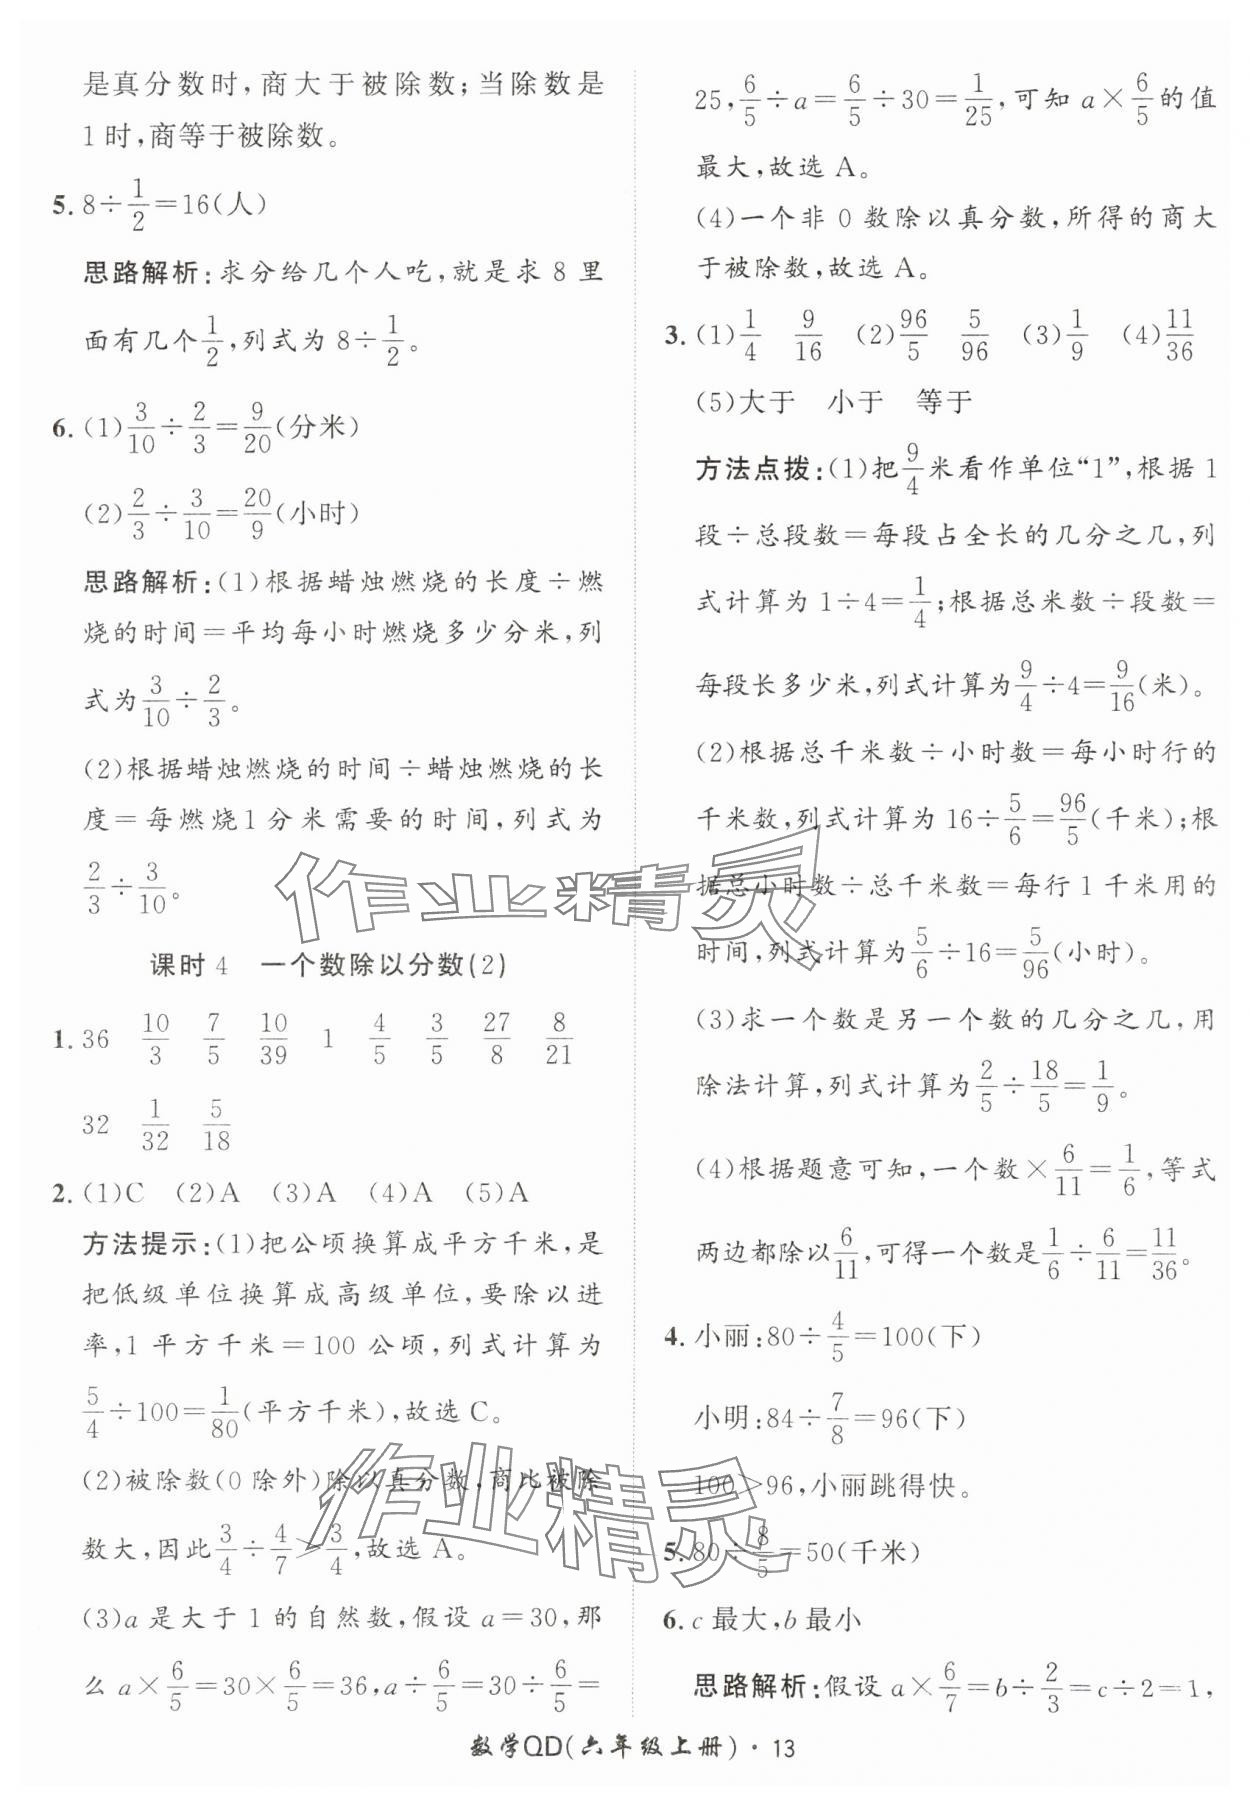 是真分数时,商大于被除数;当除数是
1时,商等于被除数。
5. 8÷1/2=16(人)
思路解析:求分给几个人吃,就是求8里
面有几个1/2,列式为8÷1/2。
6. (1)3/10÷2/3=9/20(分米)
(2)2/3÷3/10=20/9(小时)
思路解析:(1)根据蜡烛燃烧的长度÷燃
烧的时间=平均每小时燃烧多少分米,列
式为3/10÷2/3。
(2)根据蜡烛燃烧的时间÷蜡烛燃烧的长
度=每燃烧1分米需要的时间,列式为
2/3÷3/10。
课时4 一个数除以分数(2)
1. 36 10/3 7/5 10/39 1 4/5 3/5 27/8 8/21
32 1/32 5/18
2. (1)C (2)A (3)A (4)A (5)A
方法提示:(1)把公顷换算成平方千米,是
把低级单位换算成高级单位,要除以进
率,1平方千米=100公顷,列式计算为
5/4÷100=1/80(平方千米),故选C。
(2)被除数(0除外)除以真分数,商比被除
数大,因此3/4÷4/7>3/4,故选A。
(3)a是大于1的自然数,假设a=30,那
么a×6/5=30×6/5=36,a÷6/5=30÷6/5=
25,6/5÷a=6/5÷30=1/25,可知a×6/5的值
最大,故选A。
(4)一个非0数除以真分数,所得的商大
于被除数,故选A。
3. (1)1/4 9/16 (2)96/5 5/96 (3)1/9 (4)11/36
(5)大于 小于 等于
方法点拨:(1)把9/4米看作单位“1”,根据1
段÷总段数=每段占全长的几分之几,列
式计算为1÷4=1/4;根据总米数÷段数=
每段长多少米,列式计算为9/4÷4=9/16(米)。
(2)根据总千米数÷小时数=每小时行的
千米数,列式计算为16÷5/6=96/5(千米);根
据总小时数÷总千米数=每行1千米用的
时间,列式计算为5/6÷16=5/96(小时)。
(3)求一个数是另一个数的几分之几,用
除法计算,列式计算为2/5÷18/5=1/9。
(4)根据题意可知,一个数×6/11=1/6,等式
两边都除以6/11,可得一个数是1/6÷6/11=11/36。
4. 小丽:80÷4/5=100(下)
小明:84÷7/8=96(下)
100>96,小丽跳得快。
5. 80÷8/5=50(千米)
6. c最大,b最小
思路解析:假设a×6/7=b÷2/3=c÷2=1,
数学QD(六年级上册)·13
作业精灵
作业精灵